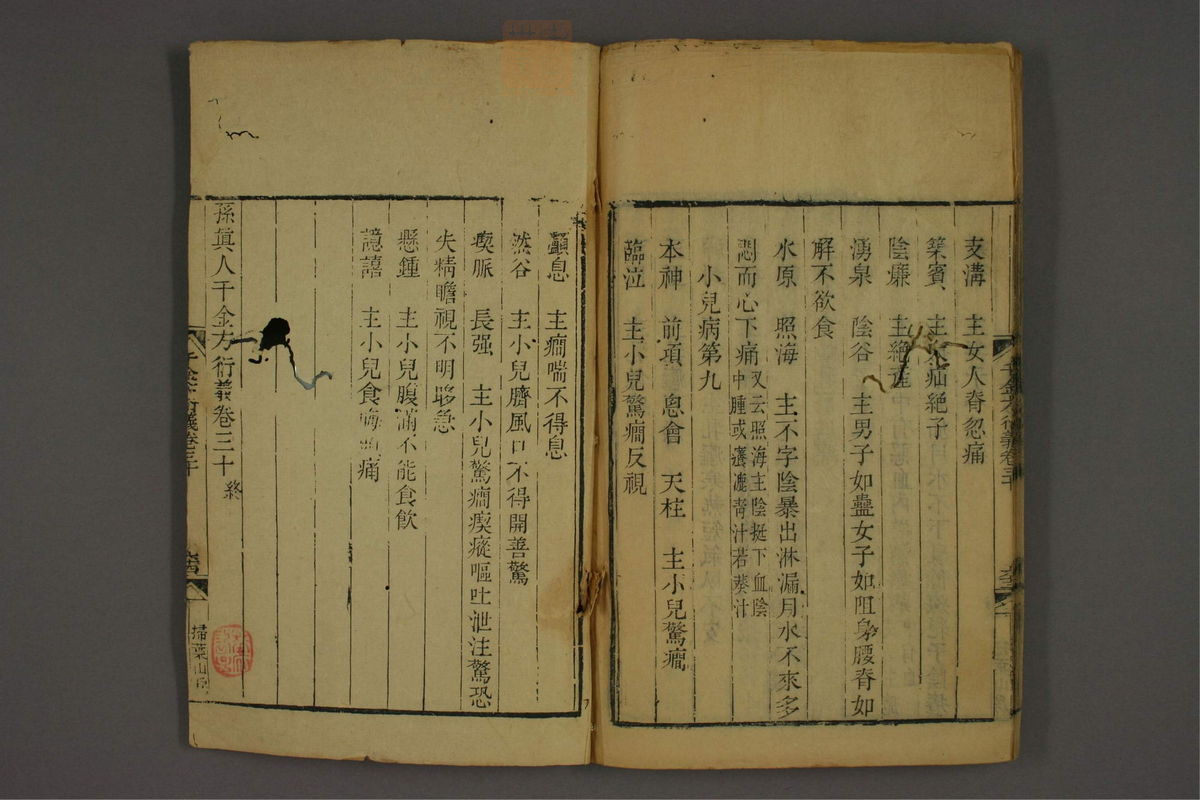 支溝　主女人脊忽痛
築賓　主大疝絶子
陰廉　主絶產
湧泉　陰谷　主男子如蠱女子如阻身腰脊如
解不欲食
水原　照海　主不字陰暴出淋漏月水不來多
悶而心下痛又云照海主陰挺下血陰中腫或癢漉青汁若葵汁
小兒病第九
本神　前項　囟會　天柱　主小兒驚癇
臨泣　主小兒驚癇反視
顱息　主癇喘不得息
然谷　主小兒臍風口不得開善驚
瘈脈　長强　主小兒驚癇瘈瘲嘔吐泄注驚恐
失精瞻視不明眵䁾
懸鍾　主小兒腹滿不能食飲
譩譆　主小兒食晦頭痛
孫眞人千金方衍義卷三十終
千金方衍義卷三十
掃葉山房